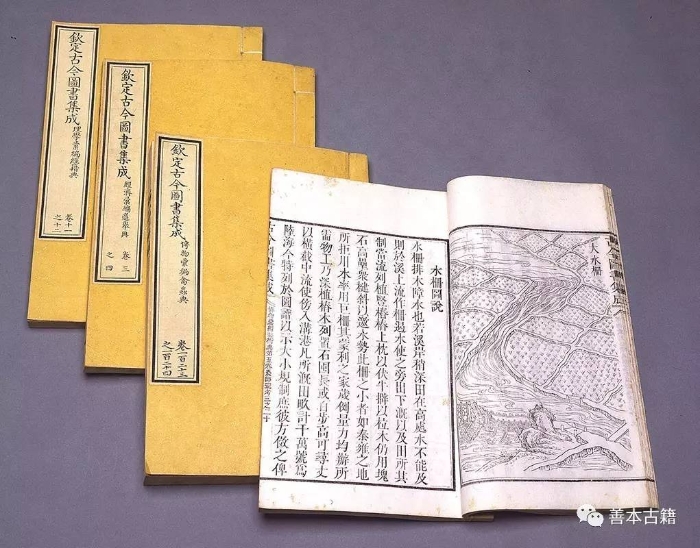 欽定古今圖書集成
理學彙編經籍典
卷十一
之十二
欽定古今圖書集成
經濟彙編選舉典
卷三
之四
欽定古今圖書集成
博物彙編禽蟲典
卷一百二十三
之一百二十四
大水柵
水柵圖說
水柵排木障水也若溪岸稍深田在高處水不能及
則於溪上流作柵遏水使之旁出下溉以及田所其
制當流列植豎樁樁上枕以伏牛擗以柆木仍用塊
石高壘衆楗斜以邀水勢此柵之小者如秦雍之地
所拒川水率用巨柵其蒙利之家歲倒量力均辦所
需物工乃深植樁木列置石囤長或百步高可尋丈
以橫截中流使傍入溝港凡所溉田畝計千萬號爲
陸海今特列於圖譜以示大小規制庶彼方倣之俾
古今圖書集成
善本古籍